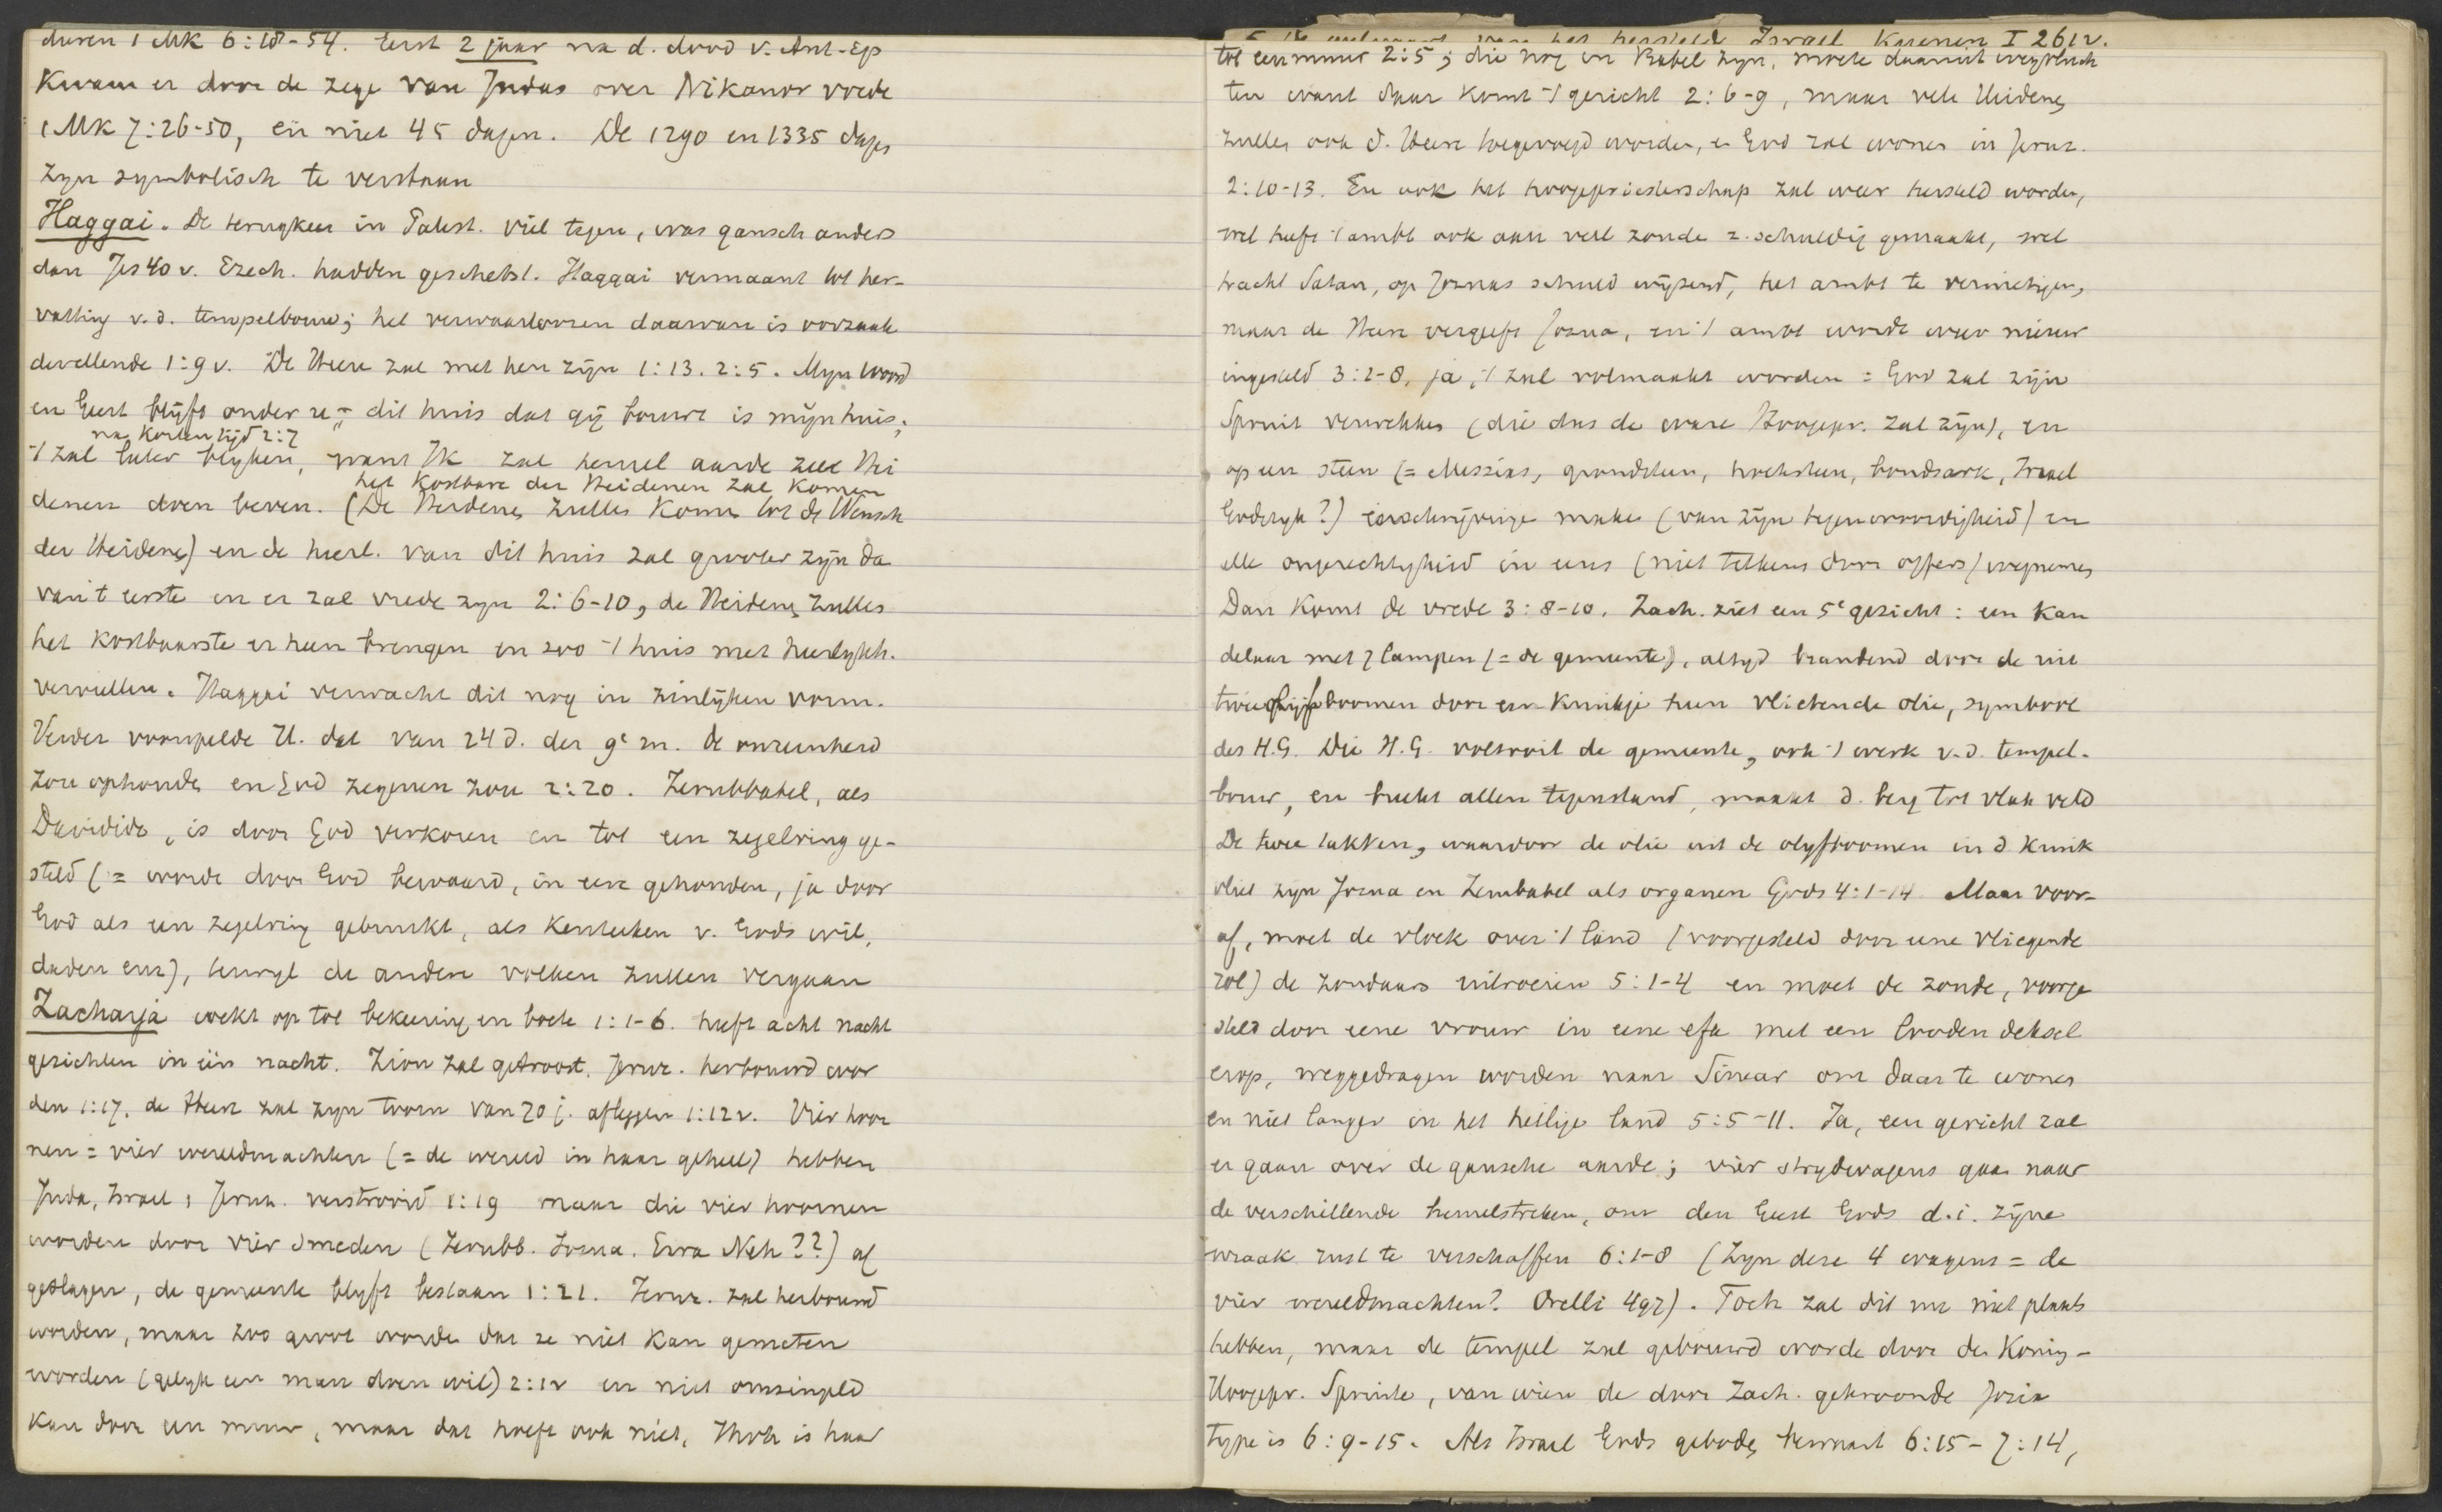 duren 1 Mk 6:18-54. Eerst 2 jaar na d. dood v. Ant-Ep
Kwam er door de zege van Judas over Nikanor vrede
1 Mk 7:26-50, en niet 45 dagen. De 1290 en 1335 dagen
zyn symbolisch te verstaan
Haggai. De terugkeer in Palest. viel tegen, was gansch anders
dan Jes 40 v. Ezech. hadden geschetst. Haggai vermaant tot her-
vatting v.d. tempelbouw; het verwaarloozen daarvan is oorzaak
der ellende 1:9 v. De Heere zal met hen zijn 1:13. 2:5. Myn woord
en Geest blijft onder u - dit huis dat gij bouwt is mijn huis;
na korten tijd 2:7
't zal later blyken, want Ik zal hemel aarde zee Hei
het Kostbare der Heidenen zal komen
denen doen beven. (De Heidenen zullen komen tot de Wensch
der Heidenen) en de heerl. van dit huis zal grooter zijn da
van 't eerste en er zal vrede zyn 2:6-10, de Heidenen zullen
het kostbaarste er heen brengen en zoo 't huis met heerlykh.
vervullen. Haggai verwacht dit nog in zinlijken vorm.
Verder voorspelde H. dat van 24 d. der 9e m. de onreinheid
zou ophouden en God zegenen zou 2:20. Zerubbabel, als
Davidide, is door God verkoren en tot een zegelring ge-
steld (= wordt door God bewaard, in eere gehouden, ja door
God als een zegelring gebruikt, als kenteeken v. Gods wil,
daden enz), terwyl de andere volken zullen vergaan
Zacharja wekt op tot bekeering en boete 1:1-6. heeft acht nacht
gezichten in één nacht. Zion zal getroost, Jeruz. herbouwd wor
den 1:17, de Heere zal zyn toorn van 70 j. afleggen 1:12 v. Vier hoor
nen = vier wereldmachten (= de wereld in haar geheel) hebben
Juda, Israel, Jeruz. verstrooid 1:19 maar die vier hoornen
worden door vier smeden (Zerubb. Jozua. Ezra Neh??) af
geslagen, de gemeente blyft bestaan 1:21. Jeruz. zal herbouwd
worden, maar zoo groot worden dat ze niet kan gemeten
worden (gelyk een man doen wil) 2:1v en niet omsingeld
kan door een muur, maar dat hoeft ook niet, Jhvh is haar
van het hersteld Israel Kuenen I 261v.
tot een muur 2:5; die nog in Babel zyn, moeten daaruit wegvluch
ten want daar komt 't gericht 2:6-9, maar vele Heidenen
zullen ook d. Heere toegevoegd worden, en God zal wonen in Jeruz.
2:10-13. En ook het hoogepriesterschap zal weer hersteld worden,
wel heeft 't ambt ook aan veel zonde z. schuldig gemaakt, wel
tracht Satan, op Jozuas schuld wijzend, het ambt te vernietigen,
maar de Heere vergeeft Jozua, en 't ambt wordt weer nieuw
ingesteld 3:1-8, ja, 't zal volmaakt worden = God zal zijn
Spruit verwekken (die dus de ware Hoogepr. zal zijn), en
op een steen (= Messias, grondsteen, hoeksteen, bondsark, Israel
Godsryk?) inschrijvinge maken (van zijn tegenwoordigheid) en
alle ongerechtigheid in eens (niet telkens door offers) wegnemen
Dan komt de vrede 3:8-10. Zach. ziet een 5e gezicht: een kan
delaar met 7 lampen (= de gemeente), altyd brandend door de uit
twee olijfboomen door een kruikje heen vlietende olie, symbool
des H.G. Die H.G. voltooit de gemeente, ook 't werk v.d. tempel-
bouw, en breekt allen tegenstand, maakt d. berg tot vlak veld
De twee takken, waardoor de olie uit de olyfboomen in d kruik
vliet zijn Jozua en Zerubabel als organen Gods 4:1-14. Maar voor-
af, moet de vloek over 't land (voorgesteld door eene vliegende
rol) de zondaars uitroeien 5:1-4 en moet de zonde, voorge
steld door eene vrouw in eene efa met een looden deksel
erop, weggedragen worden naar Sinear om daar te wonen
en niet langer in het heilige land 5:5-11. Ja, een gericht zal
er gaan over de gansche aarde; vier strydwagens gaan naar
de verschillende hemelstreken, om den Geest Gods d.i. zijne
wraak rust te verschaffen 6:1-8 (Zyn deze 4 wagens = de
vier wereldmachten? Orelli 497). Toch zal dit nu niet plaats
hebben, maar de tempel zal gebouwd worde door den Koning-
Hoogepr. Spruite, van wien de door Zach. gekroonde Jozua
type is 6:9-15. Als Israel Gods geboden bewaart 6:15-7:14,